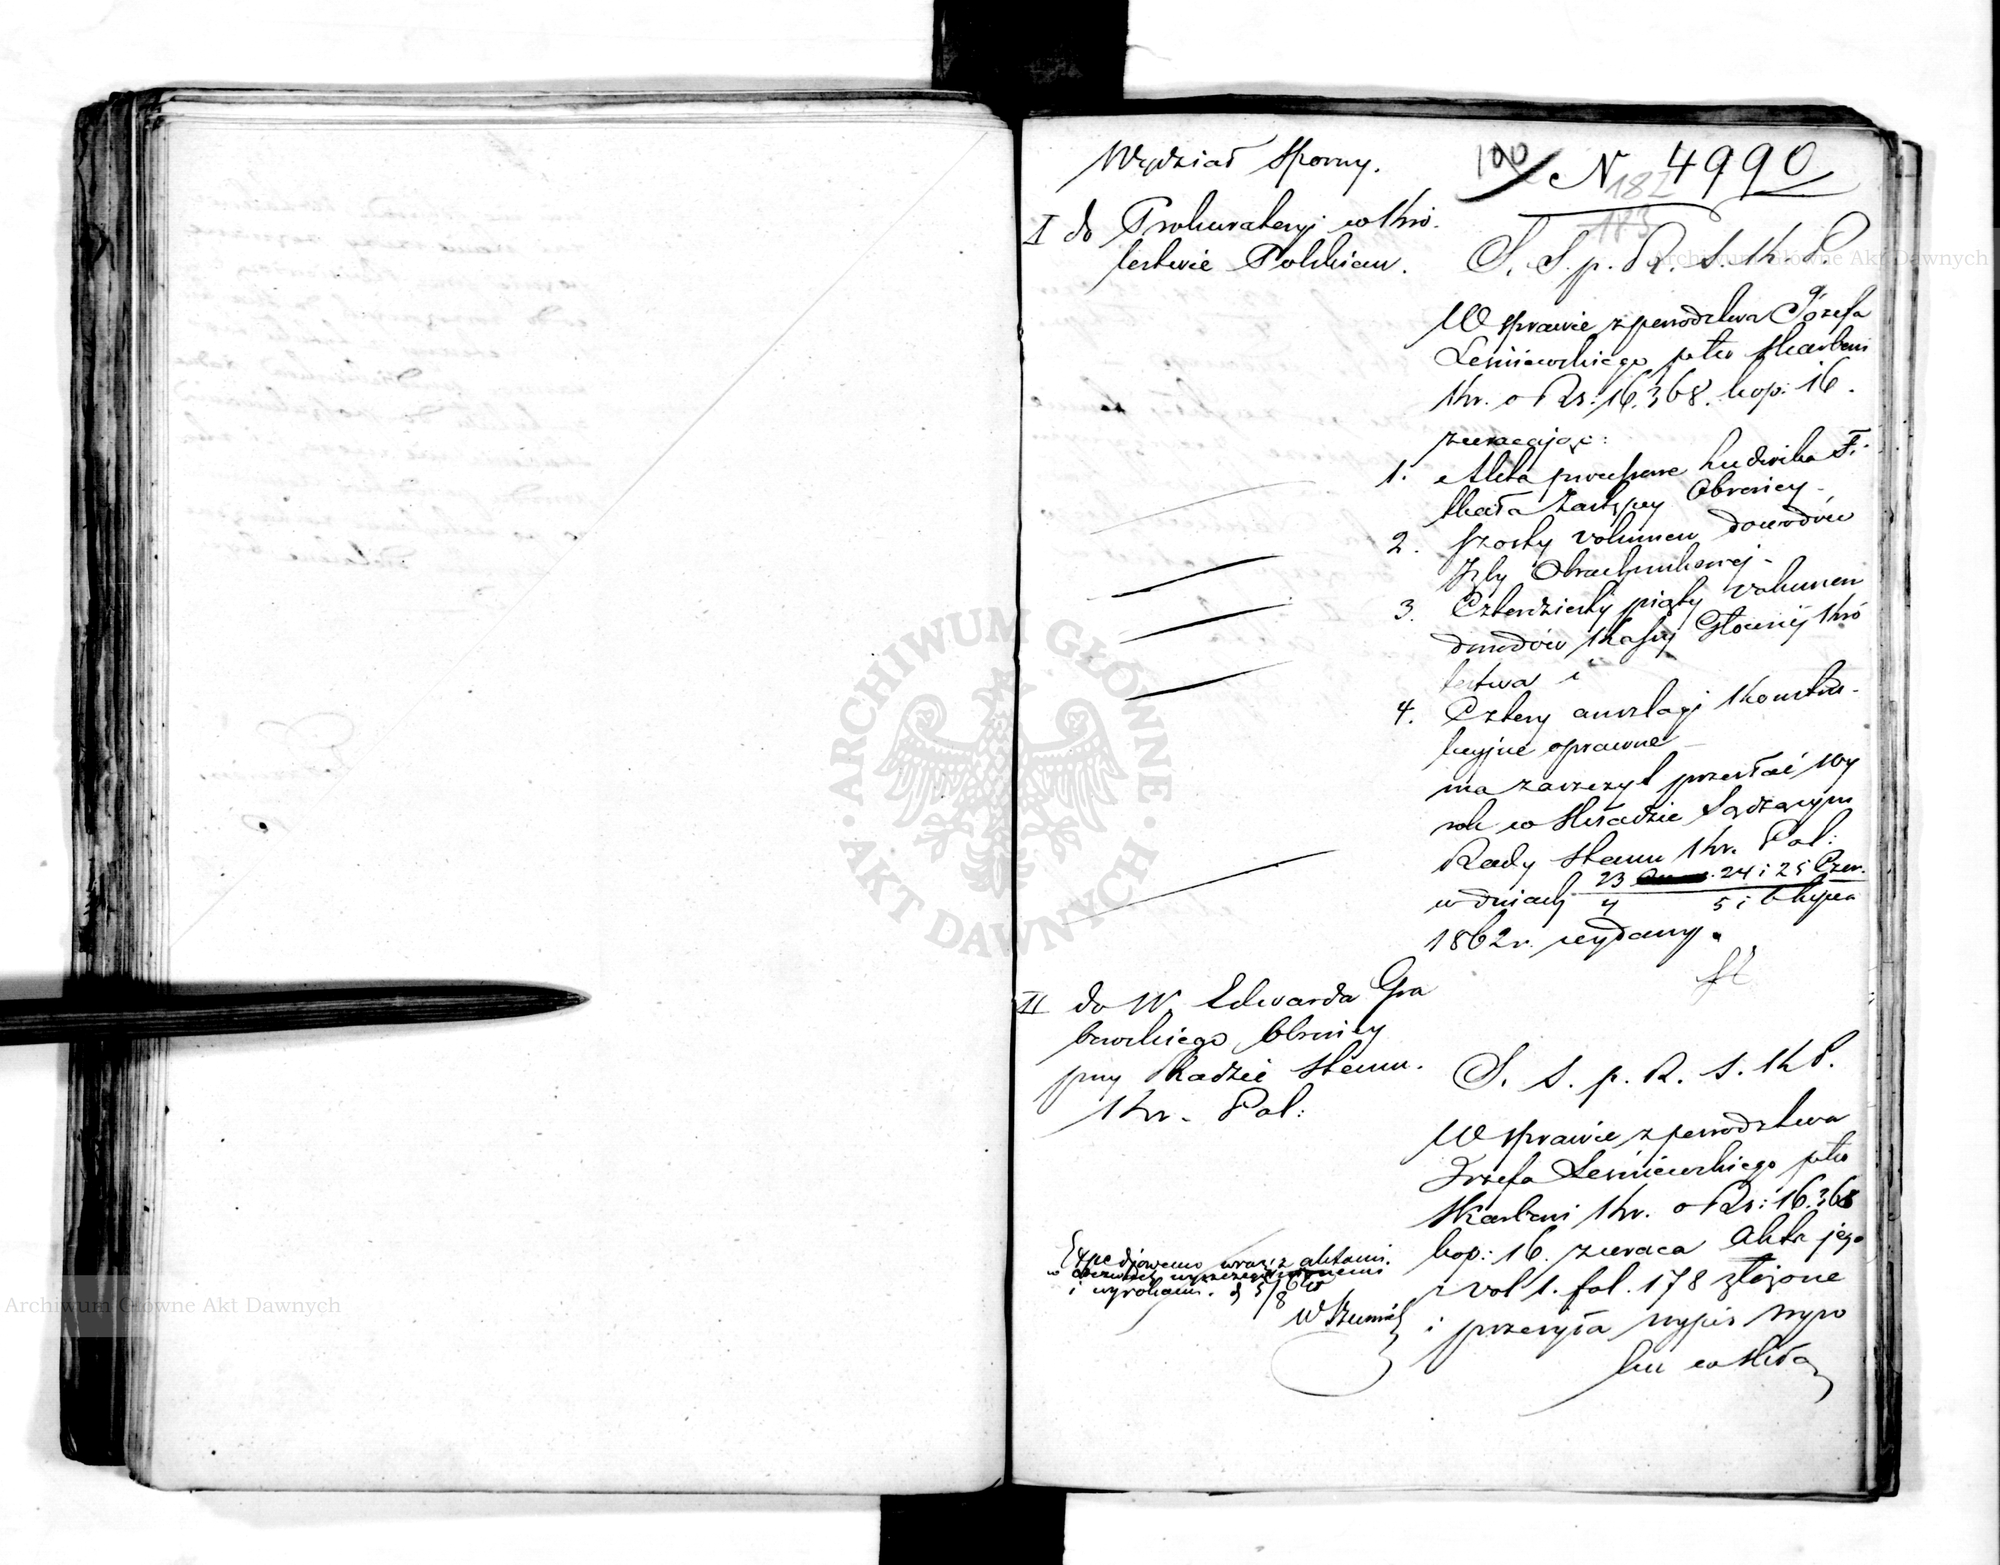 Wydział Sporny.
190 N 4990
182
183
I do Prokuratoryi w Kró-
lestwie Polskiem.
S. S. p. R. S. K. P.
W sprawie z powództwa Józefa
Leśniewskiego pko Skarbowi
Kr. o Rs: 16.368. kop: 16.
zwracając:
1. Akta processowe Ludwika
Zastępcy Obrońcy -
2. szósty volumen dowodów
Izby Obrachunkowej -
3. Czterdziesty piąty volumen
dowodów Kassy Głównej Kró
lestwa i
4. Cztery anszlagi Konstru-
kcyjne oprawne -
ma zaszczyt przesłać wy
rok w Składzie Sądzącym
Rady Stanu Kr. Pol:
w dniach 23 24 i 25 Czer.
4 5 i 6 Lipca
1862 r. wydany.
II do W. Edwarda Gra
bowskiego Obrońcy
przy Radzie Stanu.
Kr. Pol:
S. S. p. R. S. K P.
W sprawie z powództwa
Józefa Leśniewskiego pko
Skarbowi Kr. o Rs: 16.368
kop: 16. zwraca Akta jego
z vol 1. fol. 178 złożone
i przesyła wypis wyro
ku w Skła
Expedjowano wraz z aktami
w odezwach wyszczególnionemi
i wyrokami. d 5/8 62
Archiwum Główne Akt Dawnych
Archiwum Główne Akt Dawnych
ARCHIWUM GŁÓWNE
AKT DAWNYCH